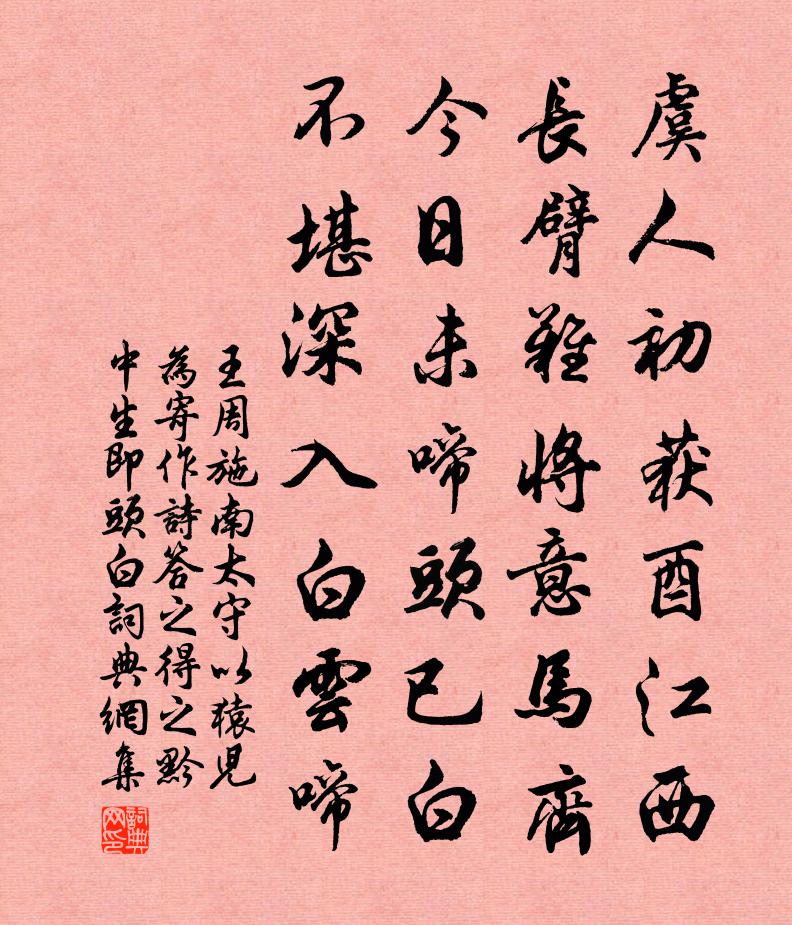 虞人初获酉江西
長臂難將意馬齊
今日未啼頭已白
不堪深入白雲啼
王周施南太守以猿兒
為寄作詩答之得之黔
中生即頭白詞典網集
詞典网印